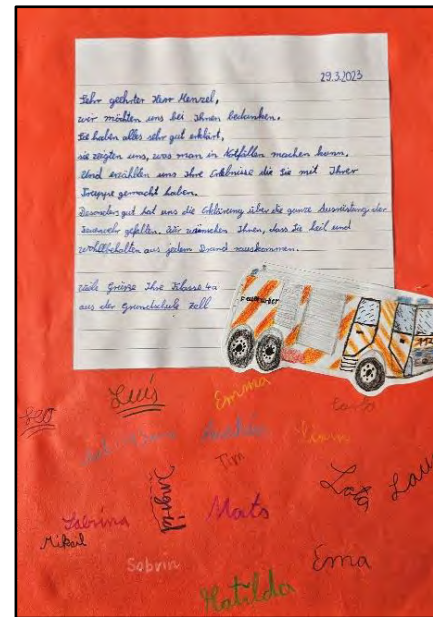 29.3.2023
Sehr geehrter Herr Menzel,
wir möchten uns bei Ihnen bedanken.
Sie haben alles sehr gut erklärt,
sie zeigten uns, was man in Notfällen machen kann.
Und erzählten uns Ihre Erlebnisse die Sie mit Ihrer
Truppe gemacht haben.
Besonders gut hat uns die Erklärung über die ganze Ausrüstung der
Feuerwehr gefallen. Wir wünschen Ihnen, dass Sie heil und
wohlbehalten aus jedem Brand rauskommen.
Viele Grüsse Ihre Klasse 4a
aus der Grundschule Zell
112
Leo
Luis
Emma
Carla
Liam
Tim
Lotta
Sabrina
Ingrid
Mats
Mikail
Sobrin
Ema
Matilda